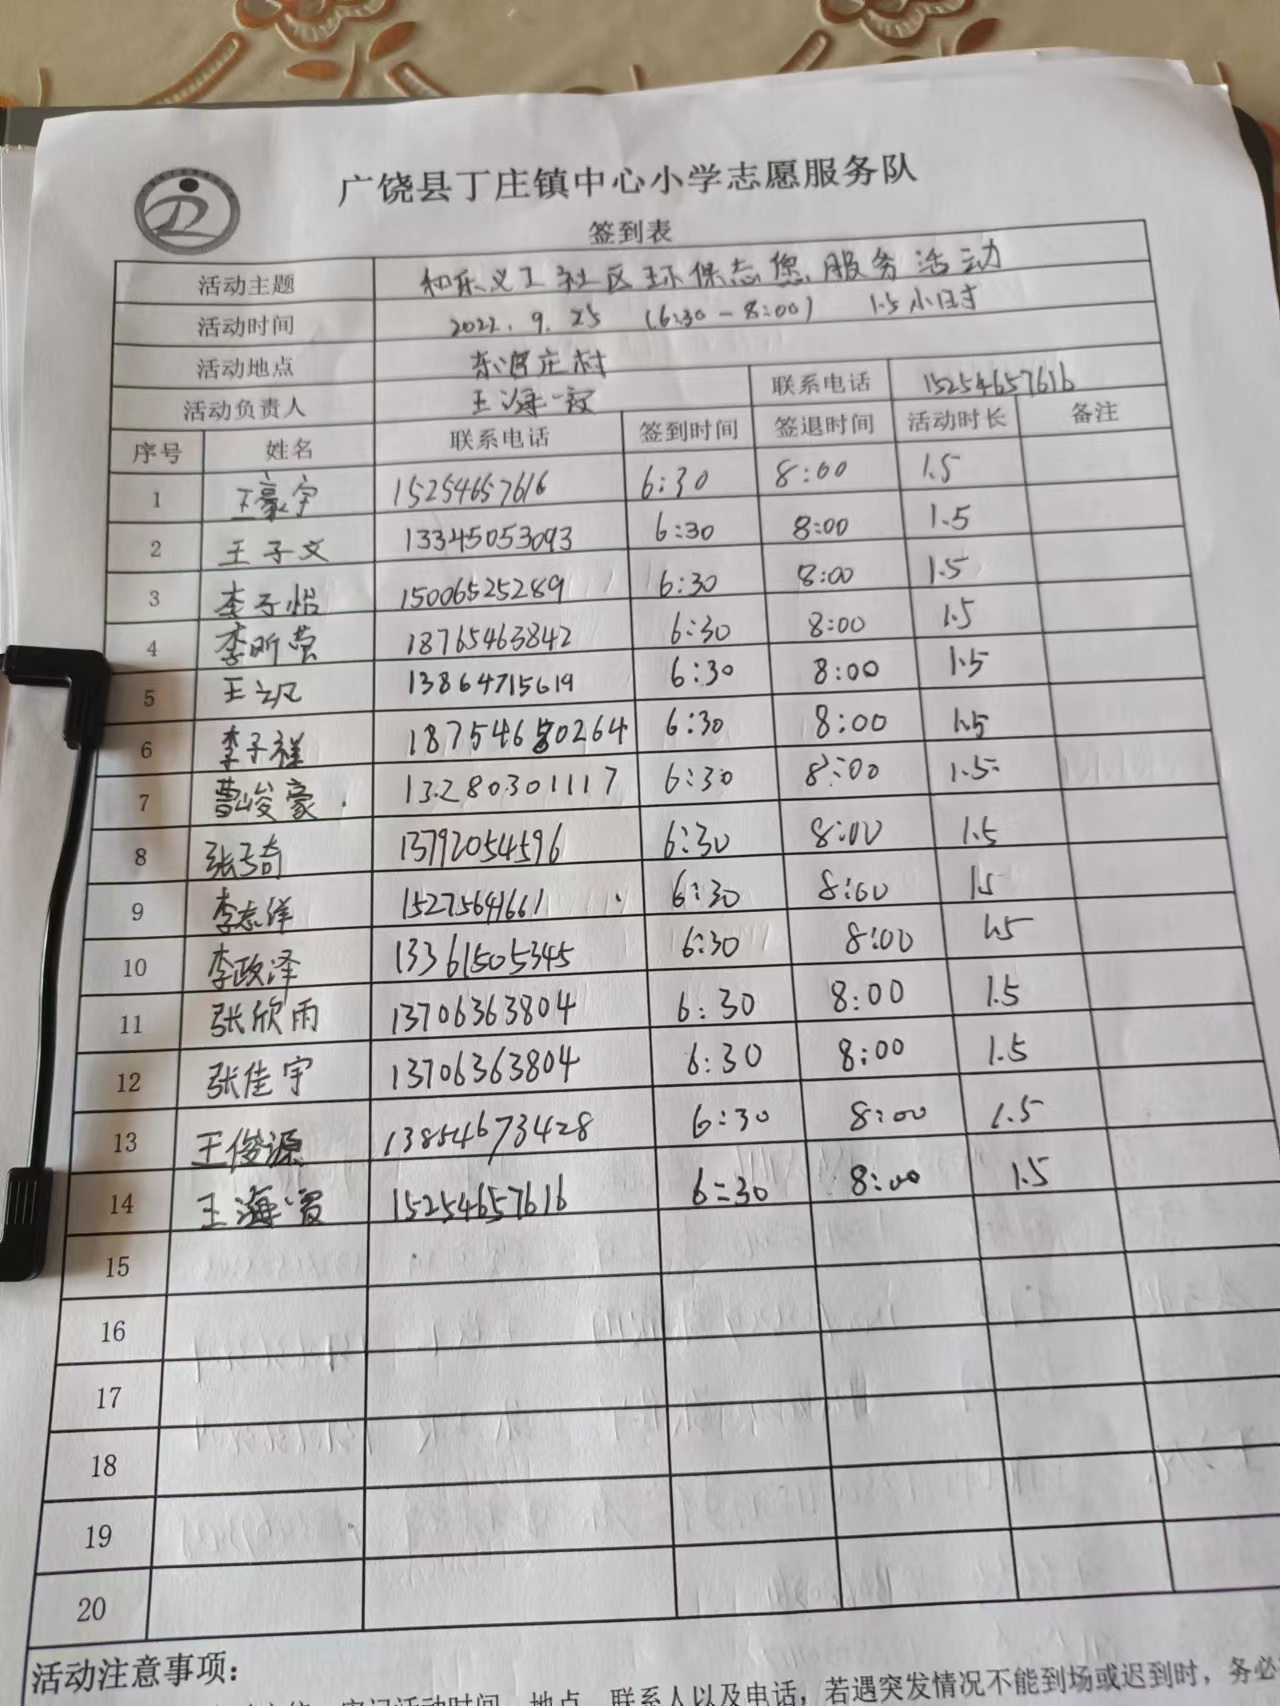 广饶县丁庄镇中心小学志愿服务队
签到表
活动主题 和乐义工社区环保志愿服务活动
活动时间 2022.9.25 (6:30-8:00) 1.5小时
活动地点 庄村
活动负责人 王海 联系电话 15254657616
序号 姓名 联系电话 签到时间 签退时间 活动时长 备注
1 王豪宇 15254657616 6:30 8:00 1.5
2 王子文 13345053093 6:30 8:00 1.5
3 李子怡 15006525289 6:30 8:00 1.5
4 李昕莹 18765463842 6:30 8:00 1.5
5 王 13864715619 6:30 8:00 1.5
6 李子祥 6:30 8:00 1.5
7 曹峻豪 13280301117 6:30 8:00 1.5
8 张弓奇 13792054596 6:30 8:00 1.5
9 李志洋 15275641661 6:30 8:00 1.5
10 李政泽 13361505345 6:30 8:00 1.5
11 张欣雨 13706363804 6:30 8:00 1.5
12 张佳宇 13706363804 6:30 8:00 1.5
13 王俊源 13854673428 6:30 8:00 1.5
14 王海 15254657616 6:30 8:00 1.5
15
16
17
18
19
20
活动注意事项：
活动时间、地点、联系人以及电话，若遇突发情况不能到场或迟到时，务必